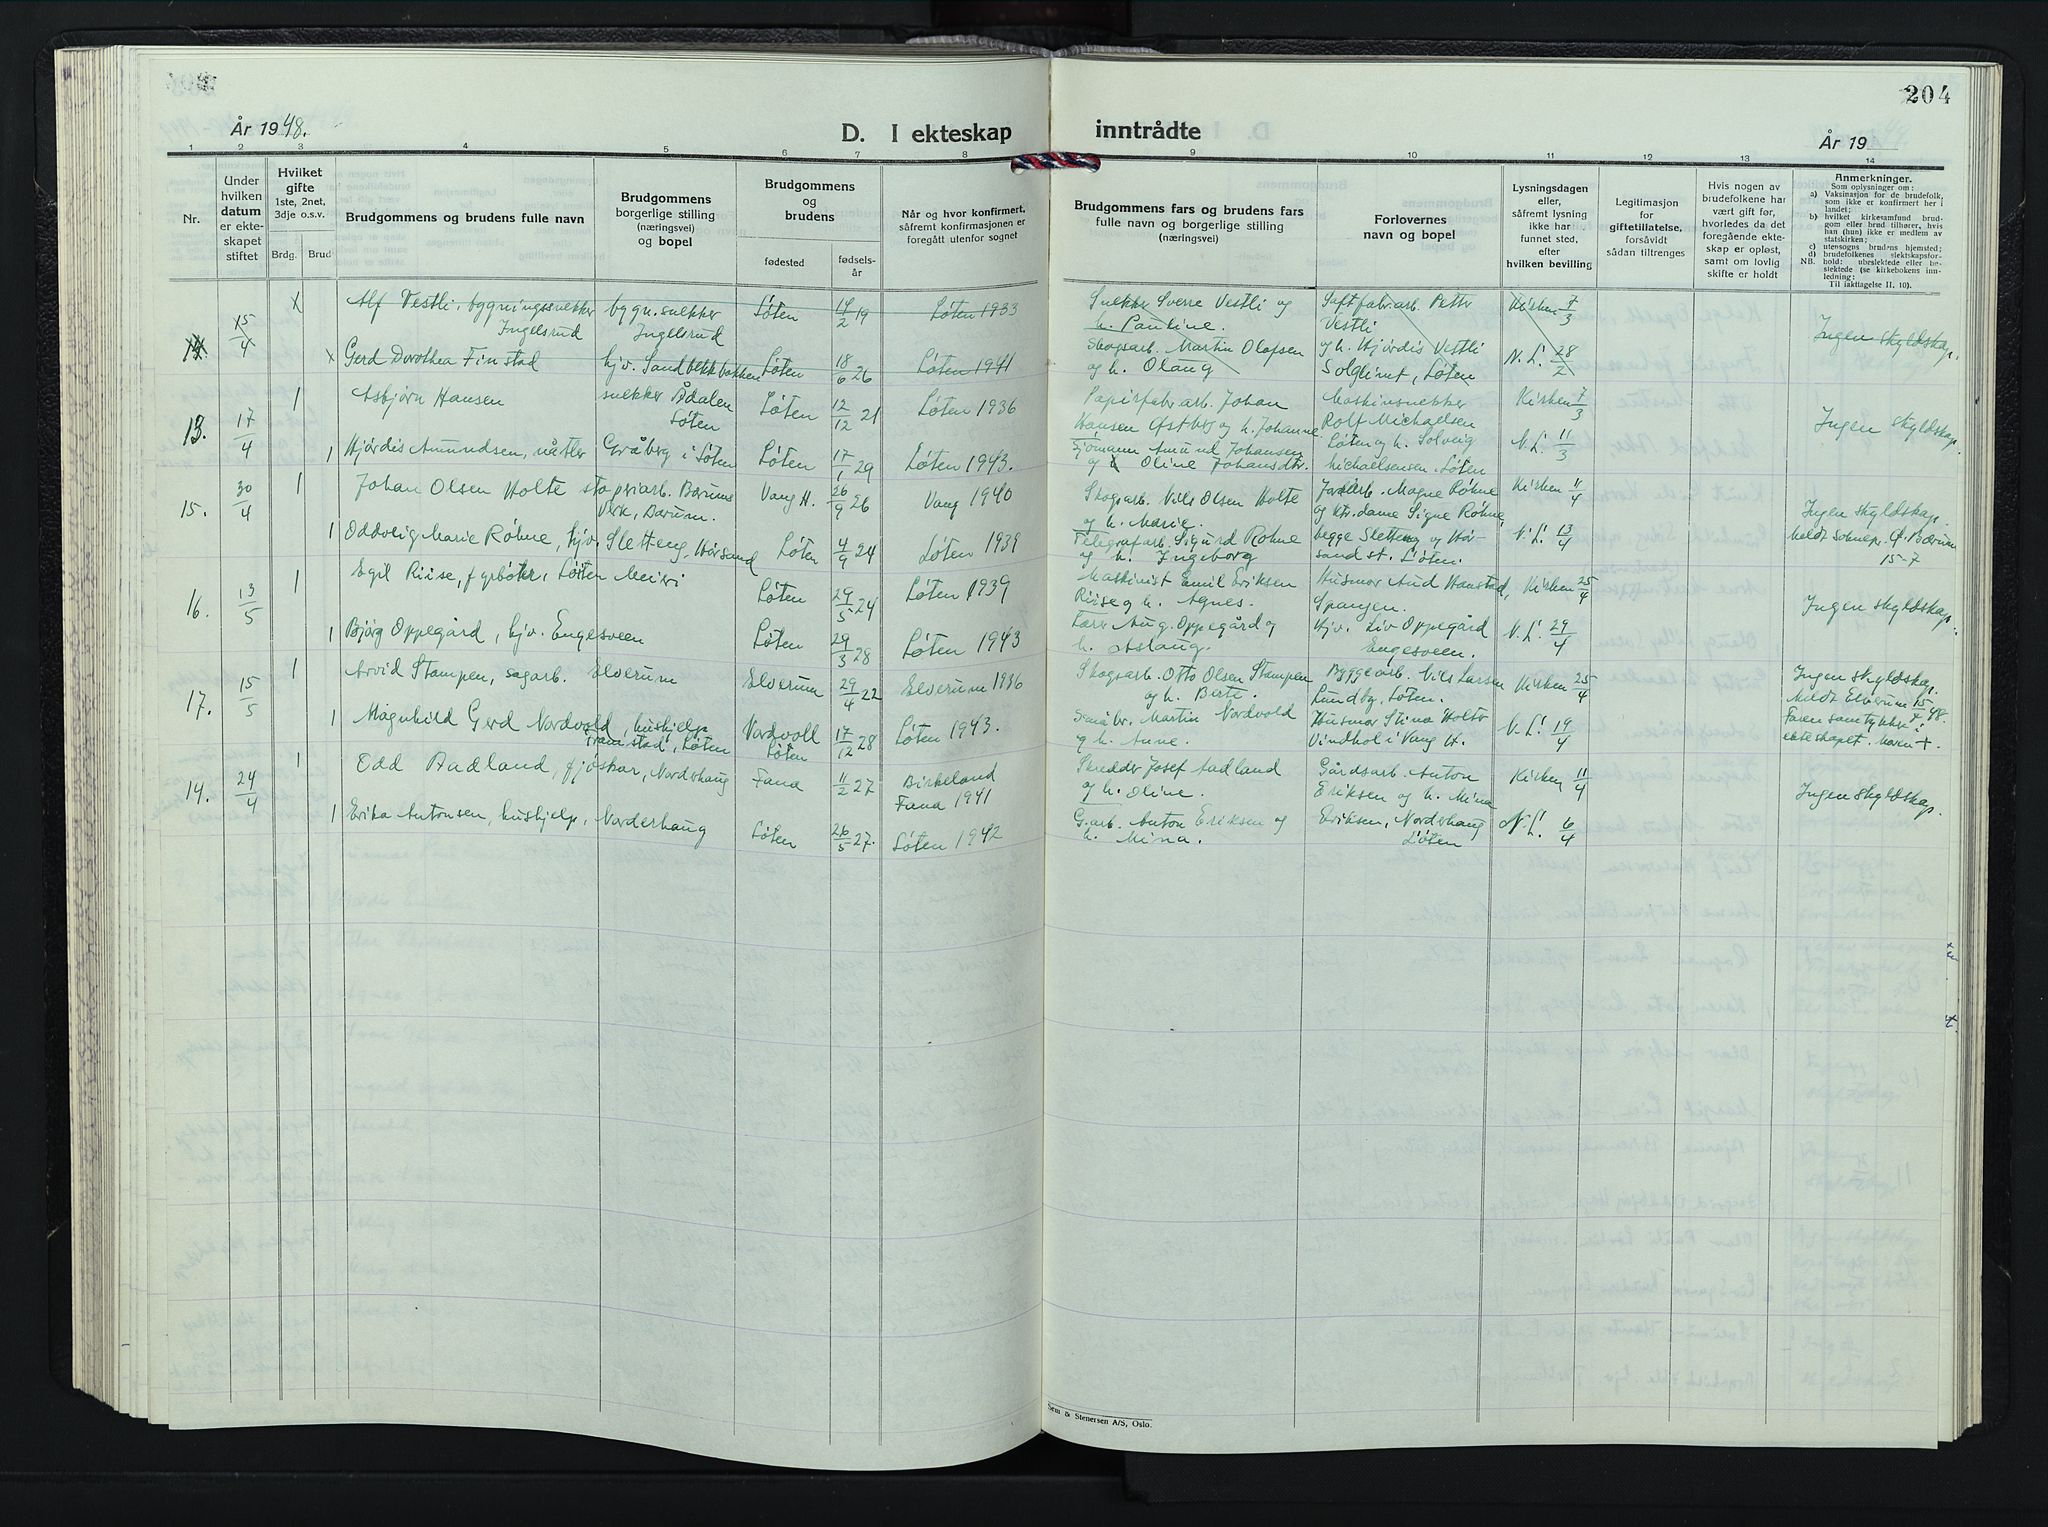 204
År 1948.
D. I ekteskap inntrådte
År 19
1 2 3 4 5 6 7 8 9 10 11 12 13 14
Nr.
Under hvilken datum er ekteskapet stiftet
Hvilket gifte 1ste, 2net, 3dje o.s.v.
Brdg. Brud
Brudgommens og brudens fulle navn
Brudgommens borgerlige stilling (næringsvei) og bopel
Brudgommens og brudens
fødested
fødselsår
Når og hvor konfirmert, såfremt konfirmasjonen er foregått utenfor sognet
Brudgommens fars og brudens fars fulle navn og borgerlige stilling (næringsvei)
Forlovernes navn og bopel
Lysningsdagen eller, såfremt lysning ikke har funnet sted, efter hvilken bevilling
Legitimasjon for giftetillatelse, forsåvidt sådan tiltrenges
Hvis nogen av brudefolkene har vært gift før, hvorledes da det foregående ekteskap er opløst, samt om lovlig skifte er holdt
Anmerkninger.
Som oplysninger om:
a) Vaksinasjon for de brudefolk, som ikke er konfirmert her i landet;
b) hvilket kirkesamfund brudgom eller brud tilhører, hvis han (hun) ikke er medlem av statskirken;
c) utensogns brudns hjemsted;
d) brudefolkenes slektskapsforhold: ubeslektede eller beslektede (se kirkebokens innledning:
NB.
Til iakttagelse II, 10).
15/4 Alf Vestli, bygningssnekker Ingelsrud bygn. snekker Ingelsrud Løten 14/2 19 Løten 1933 Snekker Sverre Vestli og h. Pauline. Saftfabr.arb. Petter Vestli Kirken 7/3 Ingen skyldskap.
Gerd Dorothea Finstad hjv. Sandbekkbakken Løten 18/6 26 Løten 1941 Skogsarb. Martin Olafsen og h. Olaug og h. Hjørdis Vestli Solglimt, Løten N.L. 28/2
13. 17/4 1 Asbjørn Hansen snekker Ådalen Løten Løten 12/12 21 Løten 1936 Papirfabr.arb. Johan Hansen Østby og h. Johanne Maskinsnekker Rolf Michaelsen Kirken 7/3 Ingen skyldskap.
1 Hjørdis Amundsen, nåtler Gråberg i Løten Løten 17/1 29 Løten 1943. Sjømann Amund Johansen og Oline Johansdtr. Løten og h. Solveig Michaelsensen, Løten N.L. 11/3
15. 30/4 1 Johan Olsen Holte støperiarb. Bærums Verk, Bærum. Vang H. 26/9 26 Vang 1940 Skogsarb. Nils Olsen Holte og h. Marie. Magne Røhne og Signe Røhne, Kirken 11/4 Ingen skyldskap.
1 Oddveig Marie Røhne, hjv. Sletteng Hørsand Løten 4/9 24 Løten 1939 Telegrafarb. Sigurd Røhne og h. Ingeborg begge Sletteng og Hørsand st. Løten. N.L. 13/4 Meldt soknepr. Ø. Bærum 15-7
16. 13/5 1 Egil Riise, fyrbøter, Løten Meieri Løten 29/5 24 Løten 1939 Maskinist Emil Eriksen Riise og h. Agnes. Husmor Aud Hanstad, Spangen. Kirken 25/4 Ingen skyldskap.
1 Bjørg Oppegård, hjv. Engesveen Løten 29/3 28 Løten 1943 Aug. Oppegård og h. Aslaug. Hjv. Liv Oppegård Engesveen. N.L. 29/4
17. 15/5 1 Arvid Stampen, sagarb. Elverum Elverum 29/4 22 Elverum 1936 Skogsarb. Otto Olsen Stampen og h. Berte. Byggearb. Nils Larsen Lundby, Løten. Kirken 25/4 Ingen skyldskap. Meldt Elverum 15/7 48.
1 Magnhild Gerd Nordvold, hushjelp, Framstad, Løten Nordvoll Løten 17/12 28 Løten 1943. Småbr. Martin Nordvold og h. Anne. Husmor Stina Holter Vindhol i Vang H. N.L. 19/4 Faren samtykker i ekteskapet. Moren +.
14. 24/4 1 Odd Aadland, fjøskar, Norderhaug Fana 11/2 27 Birkeland Fana 1941 Skredder Josef Aadland og h. Oline. Gårdsarb. Anton Eriksen og h. Mina Kirken 11/4 Ingen skyldskap.
1 Erika Antonsen, hushjelp, Norderhaug Løten 26/5 27. Løten 1942 G.arb. Anton Eriksen og h. Mina. Eriksen, Norderhaug Løten N.L. 6/4
Sem & Stenersen A/S, Oslo.